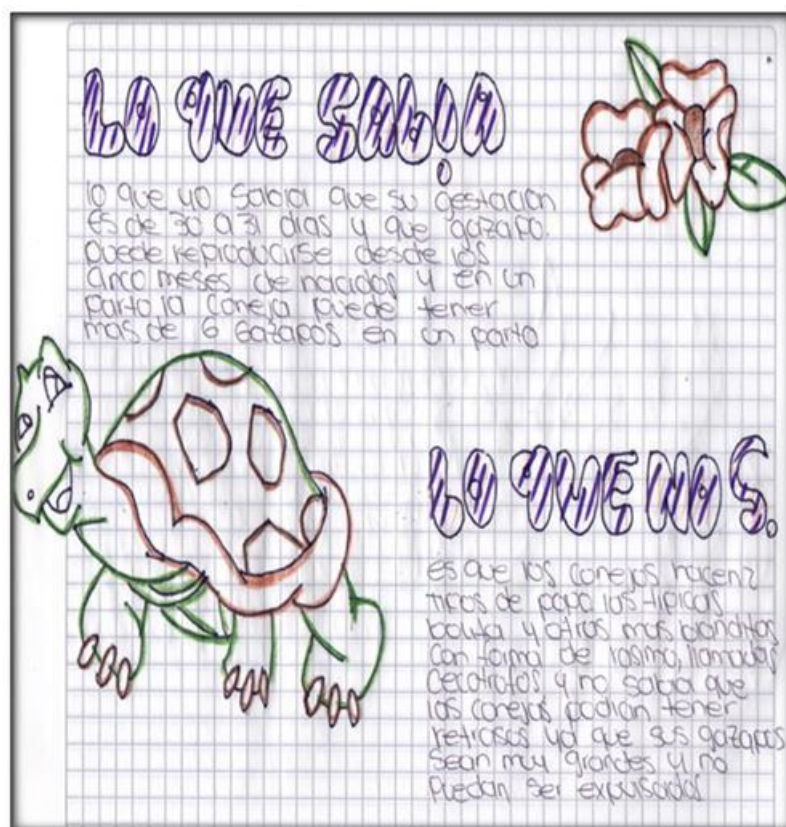 LO QUE SABIA
lo que yo sabia que su gestación
es de 30 a 31 dias y que gazapo.
puede reproducirse desde los
cinco meses de nacidos y en un
parto la coneja puede tener
mas de 6 Gazapos en un parto
LO QUE NO S.
es que los conejos hacen 2
tipos de popo las tipicas
bolita y otros mas blanditos
con forma de rasimo, llamados
cecotrofos y no sabia que
los conejos podian tener
retrasos ya que sus gazapos
sean muy grandes y no
puedan ser expulsados